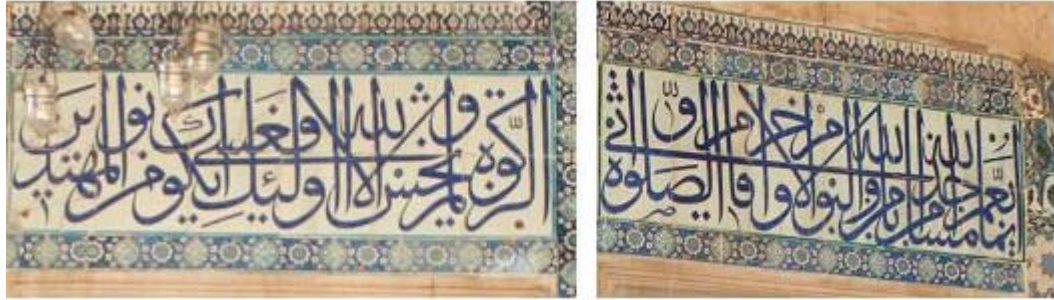 انما يعمر مساجد الله من امن بالله واليوم الاخر واقام الصلوة واتى
الزكوة ولم يخش الا الله فعسى اولئك ان يكونوا من المهتدين